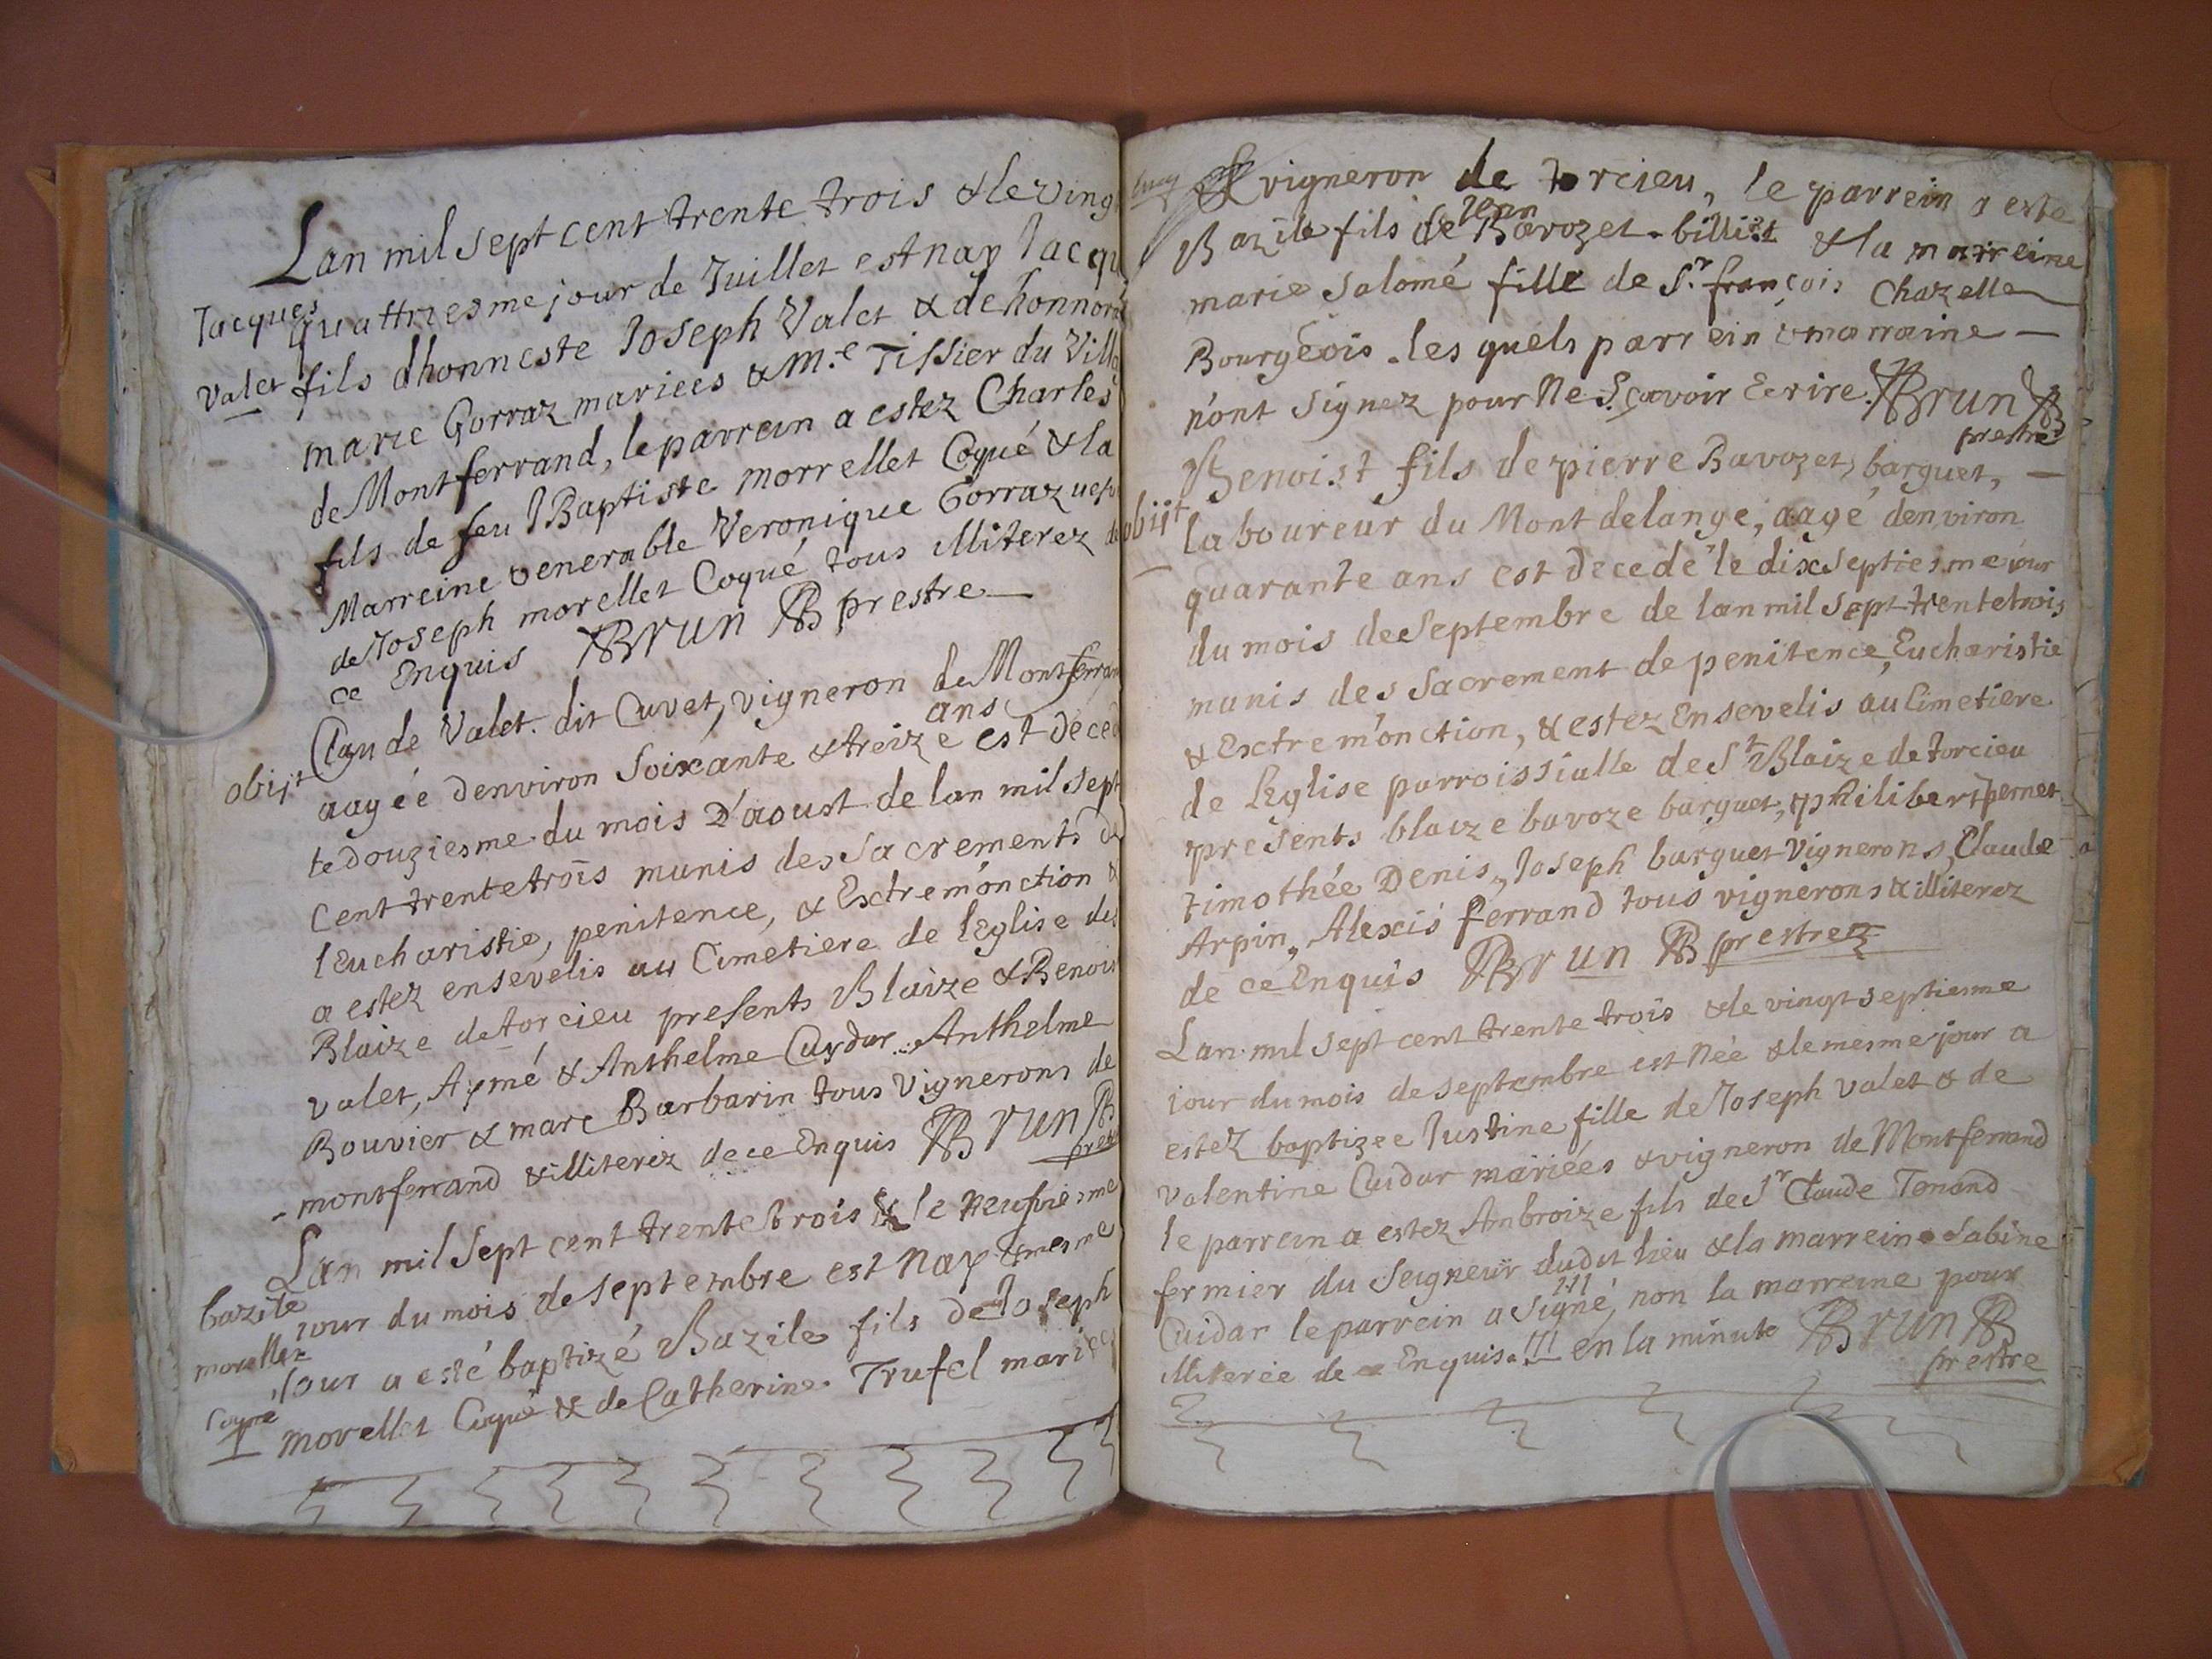 Lan mil sept cent trente trois & le ving
Jacques
quattriesme jour de Juillet est nay Jacqu
Valet
fils dhonneste Joseph Valet & de honnor
marie Gorraz mariees & M.e Tissier du Villa
de Montferrand, le parrein a estez Charles
fils de feu JBaptiste morrellet Coqué & la
Marreine venerable Veronique Gorraz
de Joseph morellet Coqué tous illiterez de
ce Enquis Brun prestre
Claude Valet dit Cuvet, vigneron de Montferran
obijt
aagée denviron Soixante & treize ans est deced
le douziesme du mois D'aoust de lan mil sept
Cent trente trois munis des Sacrements de
lEucharistie, penitence, & Extrem'onction &
a estez ensevelis au Cimetiere de lEglise de
Blaize de torcieu presents Blaize & Benois
valet, Aymé & Anthelme Cuydar Anthelme
Bouvier & marc Barbarin tous Vignerons de
montferrand & illiterez de ce Enquis Brun
pres
Lan mil sept cent trente trois & le neufviesme
bazile
jour du mois de septembre est nay & mesme
morellet
Jour a esté baptizé Bazile fils de Joseph
Coqué
morellet Coqué & de Catherine Trufel mariees
& vigneron de torcieu, le parrein a este
Bazile fils de Jean Bavozet billiet & la marreine
marie Salomé fille de Sr. françois Chazelle
Bourgeois. les quels parrein & marraine
n'ont signez pour Ne Sçavoir Ecrire. Brun
prestre
Benoist fils de pierre Bavozet, barguet,
obijt
laboureur du Mont delange, aagé denviron
quarante ans est decedé le dixseptiesme jour
du mois de Septembre de lan mil sept trente trois
munis des Sacrement de penitence, Eucharistie
& Exctrem'onction, & estez Ensevelis au Cimetiere
de lEglise parroissialle de St Blaize de torcieu
presents blaize bavoze barguet, philibert pernet
timothée Denis, Joseph barguet Vignerons, Claude
Arpin, Alexis ferrand tous vignerons & illiterez
de ce Enquis Brun prestre
Lan mil sept cent trente trois & le vingt septiesme
jour du mois de septembre est Née & le mesme jour a
estez baptizée Justine fille de Joseph valet & de
Valentine Cuidar mariées & vigneron de Montferrand
le parrein a estez Ambroize fils de Sr Claude Tenand
fermier du Seigneur dudit lieu & la marreine Sabine
Cuidar le parrein a signé, non la marreine pour
illiterée de ce Enquis. en la minute Brun
prestre